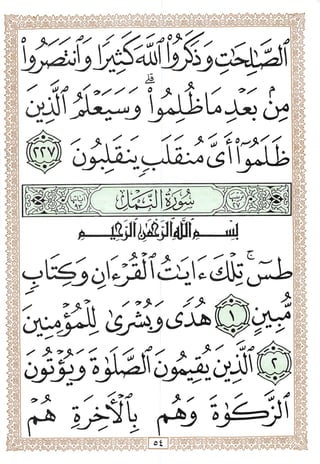 الصَّـٰلِحَـٰتِ وَذَكَرُوا۟ ٱللَّهَ كَثِيرًا وَٱنتَصَرُوا۟
مِنۢ بَعْدِ مَا ظُلِمُوا۟ ۗ وَسَيَعْلَمُ ٱلَّذِينَ
ظَلَمُوٓا۟ أَىَّ مُنقَلَبٍ يَنقَلِبُونَ ٢٢٧
سُورَةُ النَّمْلِ
بِسْمِ ٱللَّهِ ٱلرَّحْمَـٰنِ ٱلرَّحِيمِ
طسٓ ۚ تِلْكَ ءَايَـٰتُ ٱلْقُرْءَانِ وَكِتَابٍ
مُّبِينٍ ١ هُدًى وَبُشْرَىٰ لِلْمُؤْمِنِينَ
٢ ٱلَّذِينَ يُقِيمُونَ ٱلصَّلَوٰةَ وَيُؤْتُونَ
ٱلزَّكَوٰةَ وَهُم بِٱلْـَٔاخِرَةِ هُمْ
٥٤